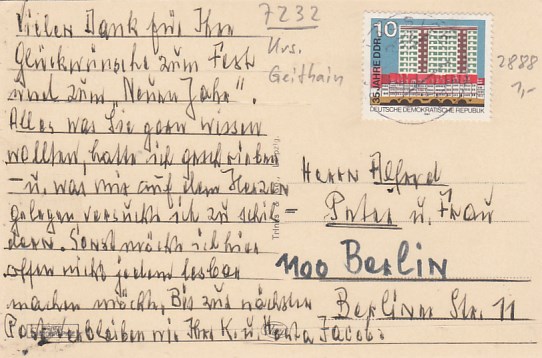 Vielen Dank für Ihre
Glückwünsche zum Fest
und zum "Neuen Jahr".
Alles was Sie gern wissen
wollten, hatte ich geschrieben
– u. was mir auf dem Herzen
gelegen versucht ich zu schil-
dern. Sonst möchte ich hier
offen nicht jedem lesbar
machen möchte. Bis zur nächsten
Post verbleiben wir Ihre K. u. Jacob.
7232
Krs.
Geithain
10
35 JAHRE DDR
DEUTSCHE DEMOKRATISCHE REPUBLIK
2888
1,-
Herrn Alfred
Peter u. Frau
1100 Berlin
Berliner Str. 11